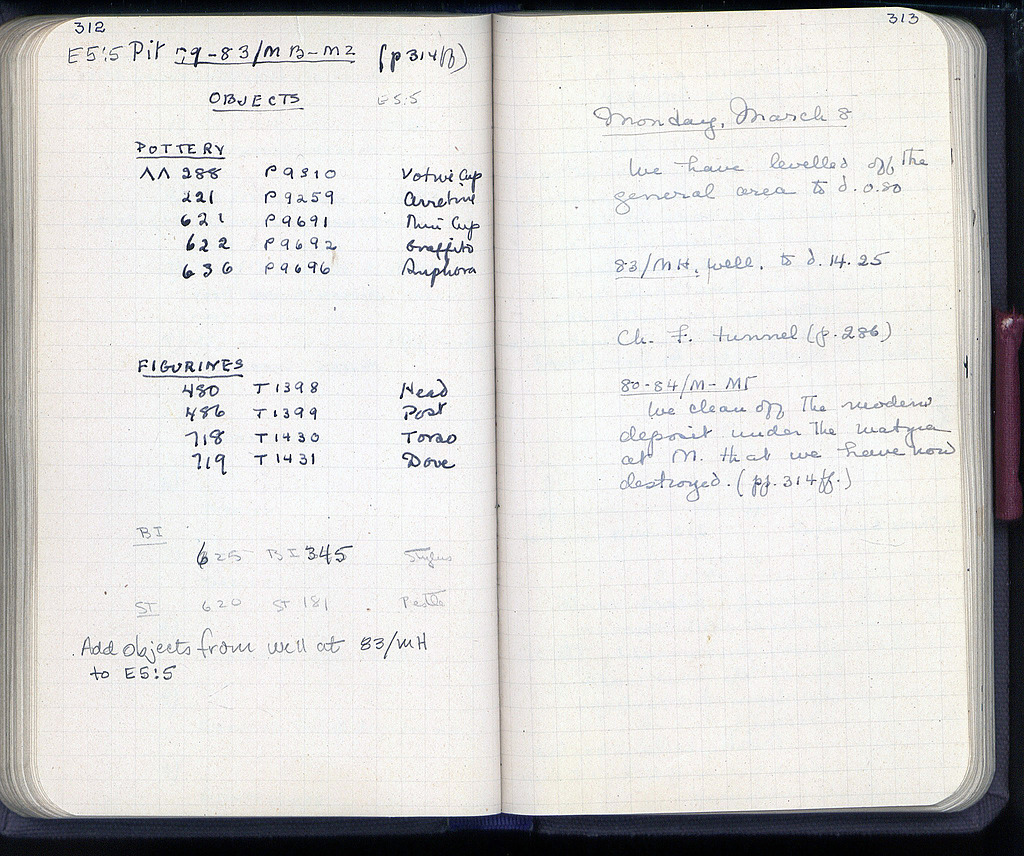 312
E5:5 Pit 79-83/MB-MZ (p 314ff)
OBJECTS E5:5
POTTERY
ΛΛ 288 P 9310 Votive Cup
221 P 9259 Arretine
621 P 9691 Mini Cup
622 P 9692 Graffito
636 P 9696 Amphora
FIGURINES
480 T 1398 Head
486 T 1399 Post
718 T 1430 Torso
719 T 1431 Dove
BI
625 BI 345 Stylus
ST 620 ST 181 Pestle
Add objects from well at 83/MH
to E5:5
313
Monday, March 8
We have levelled off the
general area to d. 0.80
83/MH, well. to d. 14.25
Ch. F. tunnel (p. 286)
80-84/M-MΓ
We clean off the modern
deposit under the
at M. that we have now
destroyed. (pp. 314ff.)